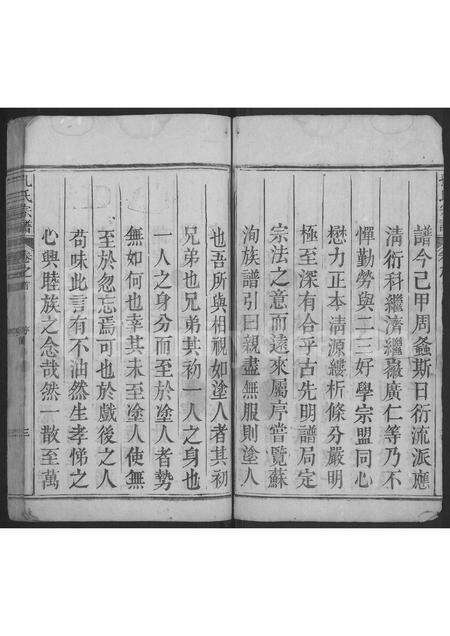 譜今已甲周螽斯日衍流派應
清衍科繼濟繼嶽廣仁等乃不
憚勤勞與二三好學宗盟同心
懋力正本清源縷析條分嚴明
極至深有合乎古先明譜局定
宗法之意而遠來屬序嘗覽蘇
洵族譜引曰親盡無服則塗人
也吾所與相視如塗人者其初
兄弟也兄弟其初一人之身也
一人之身分而至於塗人者勢
無如何也幸其未至塗人使無
至於忽忘焉可也於戲後之人
苟味此言有不油然生孝悌之
心興睦族之念哉然一散至萬
氏宗譜
卷之首
三